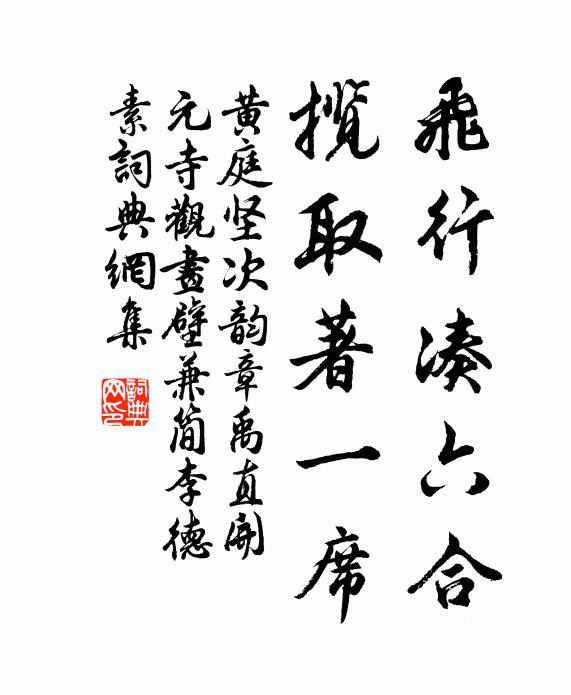 飛行湊六合
攬取著一席
黄庭坚次韵章禹直開
元寺觀畫壁兼简李德
素詞典網集
詞典網印